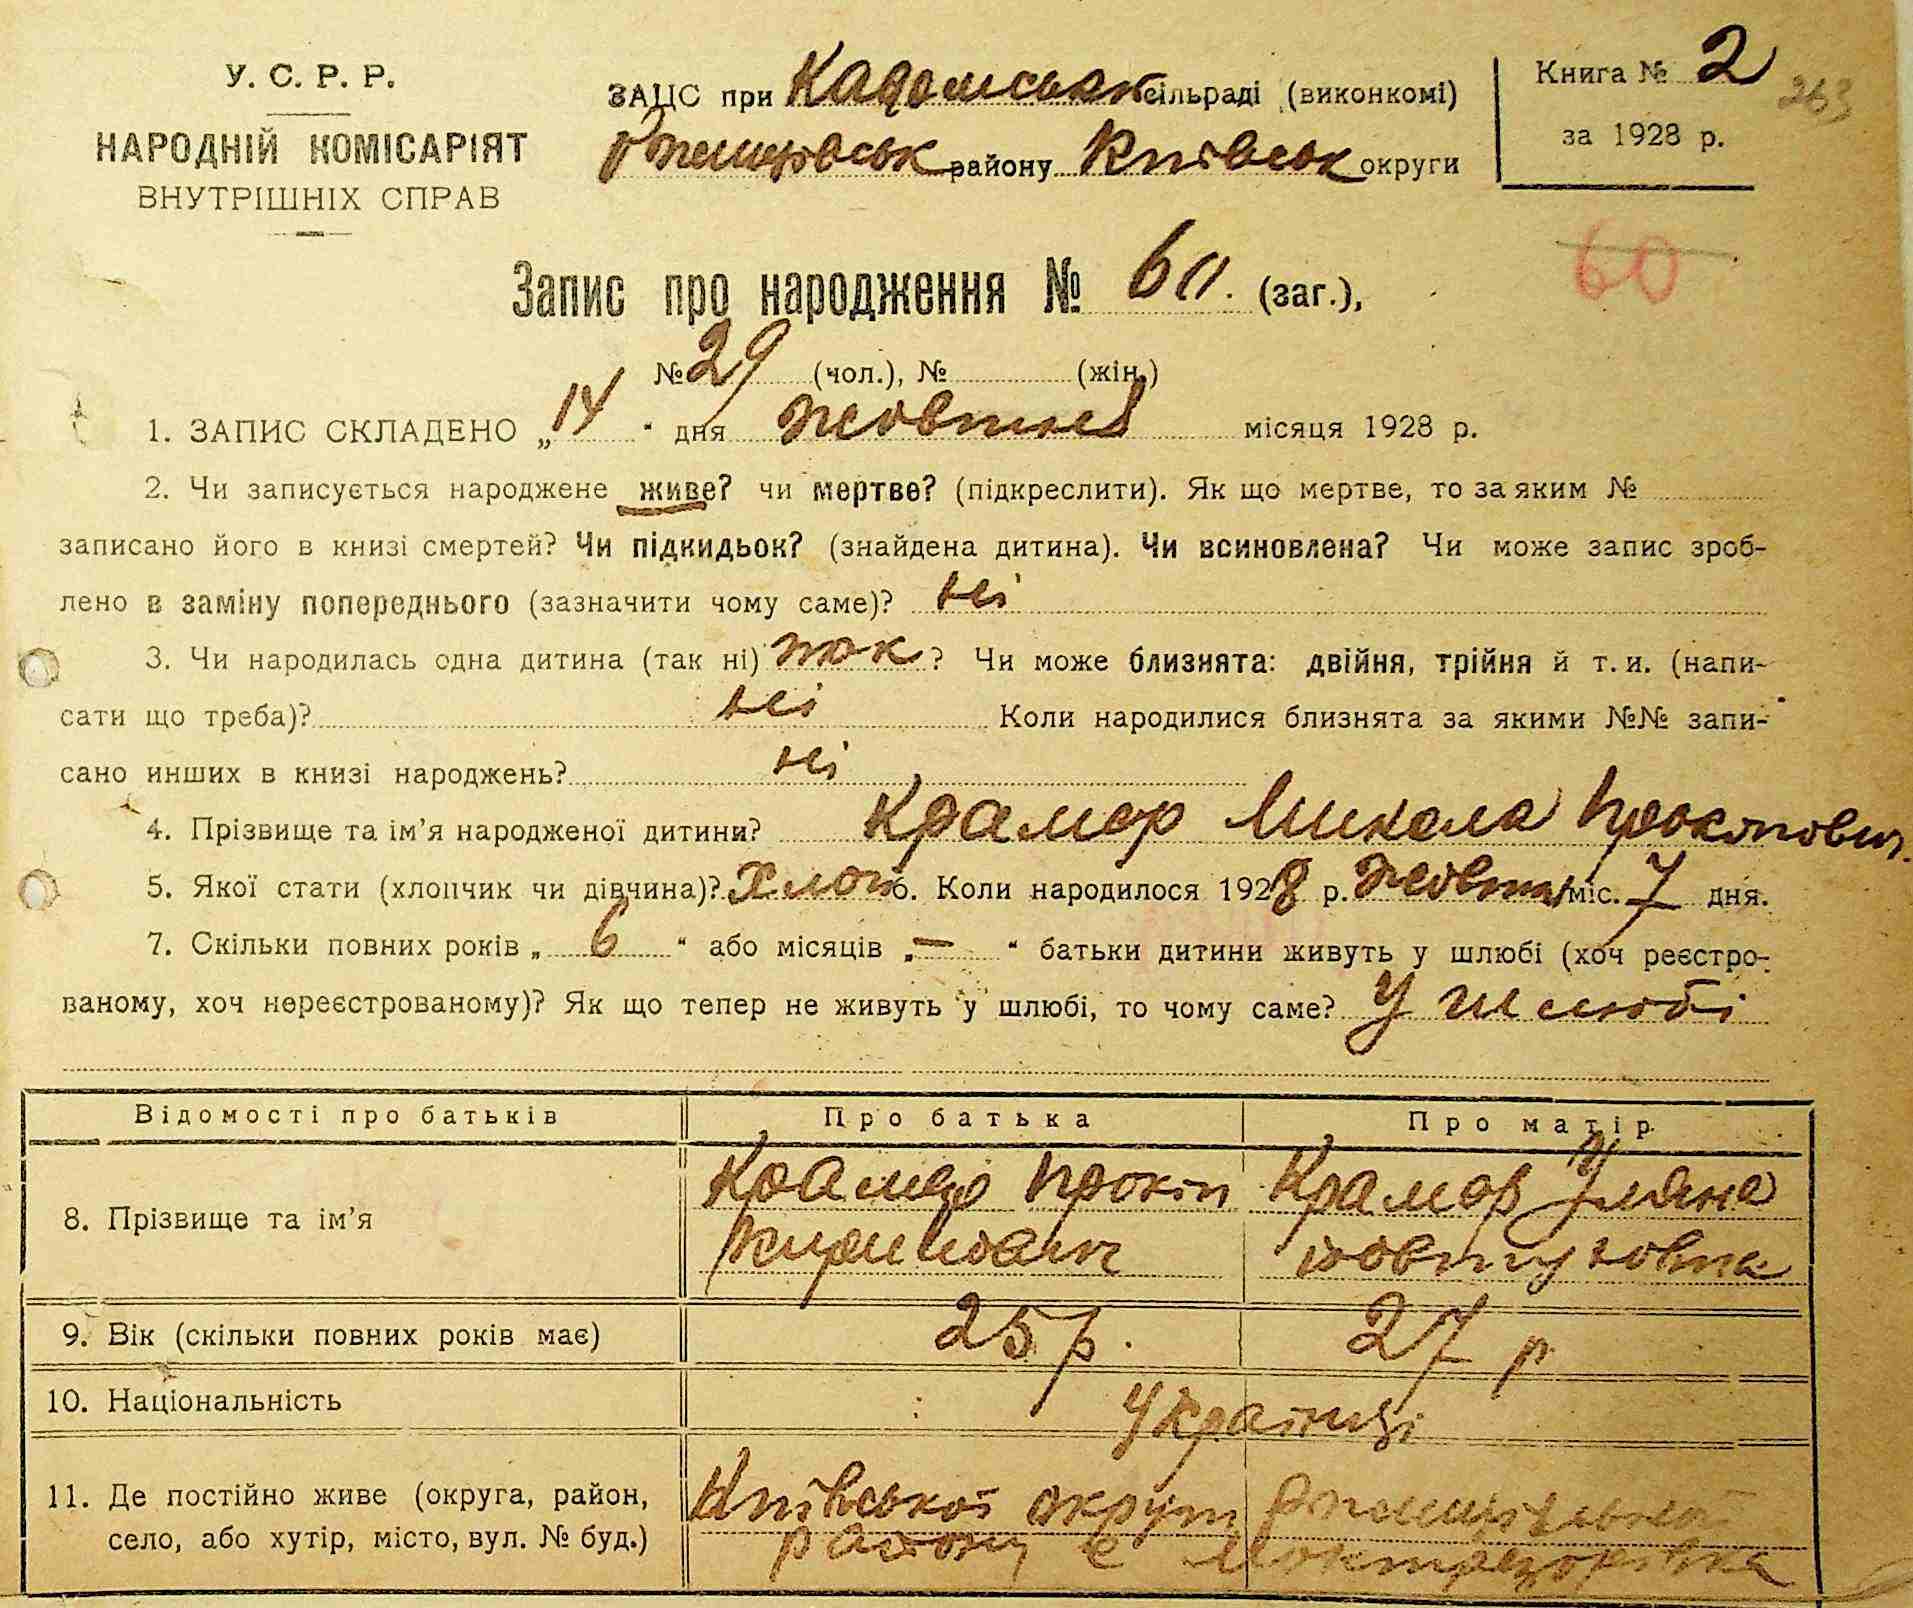 У. С. Р. Р.
НАРОДНІЙ КОМІСАРІЯТ
ВНУТРІШНІХ СПРАВ
ЗАЦС при Кадомськ сільраді (виконкомі)
Ржищівськ району Київськ округи
Книга № 2
за 1928 р.
263
60
Запис про народження № 60. (заг.),
№ 29 (чол.), № (жін.)
1. ЗАПИС СКЛАДЕНО „ 14 “ дня Жовтня місяця 1928 р.
2. Чи записується народжене живе? чи мертве? (підкреслити). Як що мертве, то за яким №
записано його в книзі смертей? Чи підкидьок? (знайдена дитина). Чи всиновлена? Чи може запис зроб-
лено в заміну попереднього (зазначити чому саме)? ні
3. Чи народилась одна дитина (так ні) так ? Чи може близнята: двійня, трійня й т. и. (напи-
сати що треба)? ні Коли народилися близнята за якими №№ запи-
сано инших в книзі народжень? ні
4. Прізвище та ім’я народженої дитини? Крамар Микола Прокопович
5. Якої стати (хлопчик чи дівчина)? хлоп 6. Коли народилося 1928 р. Жовтня міс. 7 дня.
7. Скільки повних років „ 6 “ або місяців „ — “ батьки дитини живуть у шлюбі (хоч реєстро-
ваному, хоч нереєстрованому)? Як що тепер не живуть у шлюбі, то чому саме? У шлюбі
Відомості про батьків Про батька Про матір
8. Прізвище та ім’я Крамар Прокіп Крамар Уляна
9. Вік (скільки повних років має) 25 р. 27 р
10. Національність Українці
11. Де постійно живе (округа, район, Київської округи Ржищівського
село, або хутір, місто, вул. № буд.) району с